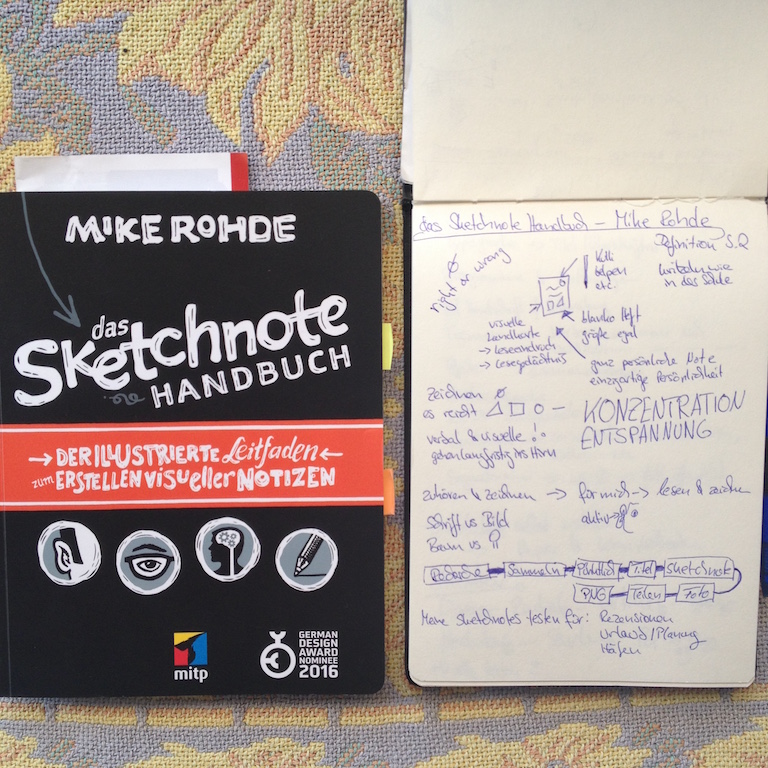 MIKE ROHDE
das
Sketchnote
HANDBUCH
DER ILLUSTRIERTE Leitfaden
zum ERSTELLEN visueller NOTIZEN
mitp
GERMAN
DESIGN
AWARD
NOMINEE
2016
das Sketchnote Handbuch – Mike Rohde
Definition S.
right or wrong
Kulli
etc.
kritzeln wie
in der
visuelle
Landkarte
→ Leseeindruck
→ Lesegedächtnis
blanko Heft
größe egal
ganz persönliche Note
einzigartige Persönlichkeit
zeichnen
es reicht
KONZENTRATION
ENTSPANNUNG
verbal & visuelle !
zuhören & zeichnen → für mich → lesen & zeichnen
aktiv
Schrift vs Bild
Baum vs
Sammeln
Titel
Sketchnote
PNG
Teilen
Foto
Meine Sketchnotes testen für: Rezensionen
Urlaub / Planung
Häfen